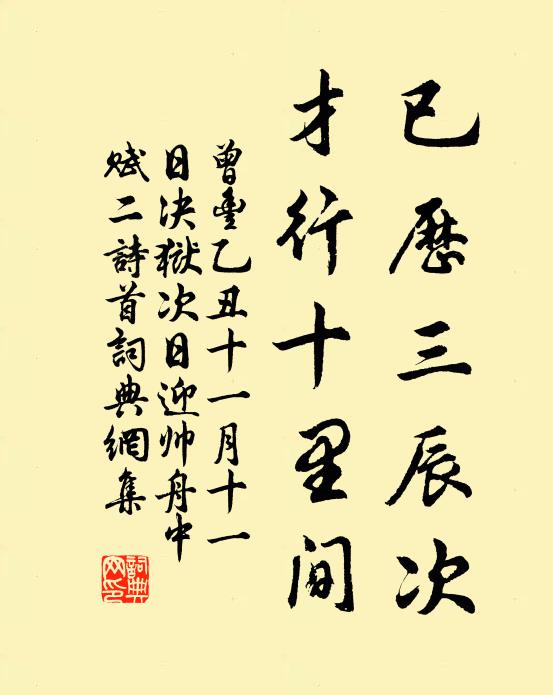 已歷三辰次
才行十里間
曾豐乙丑十一月十一
日决獄次日迎帅舟中
赋二詩首詞典網集
詞典网印